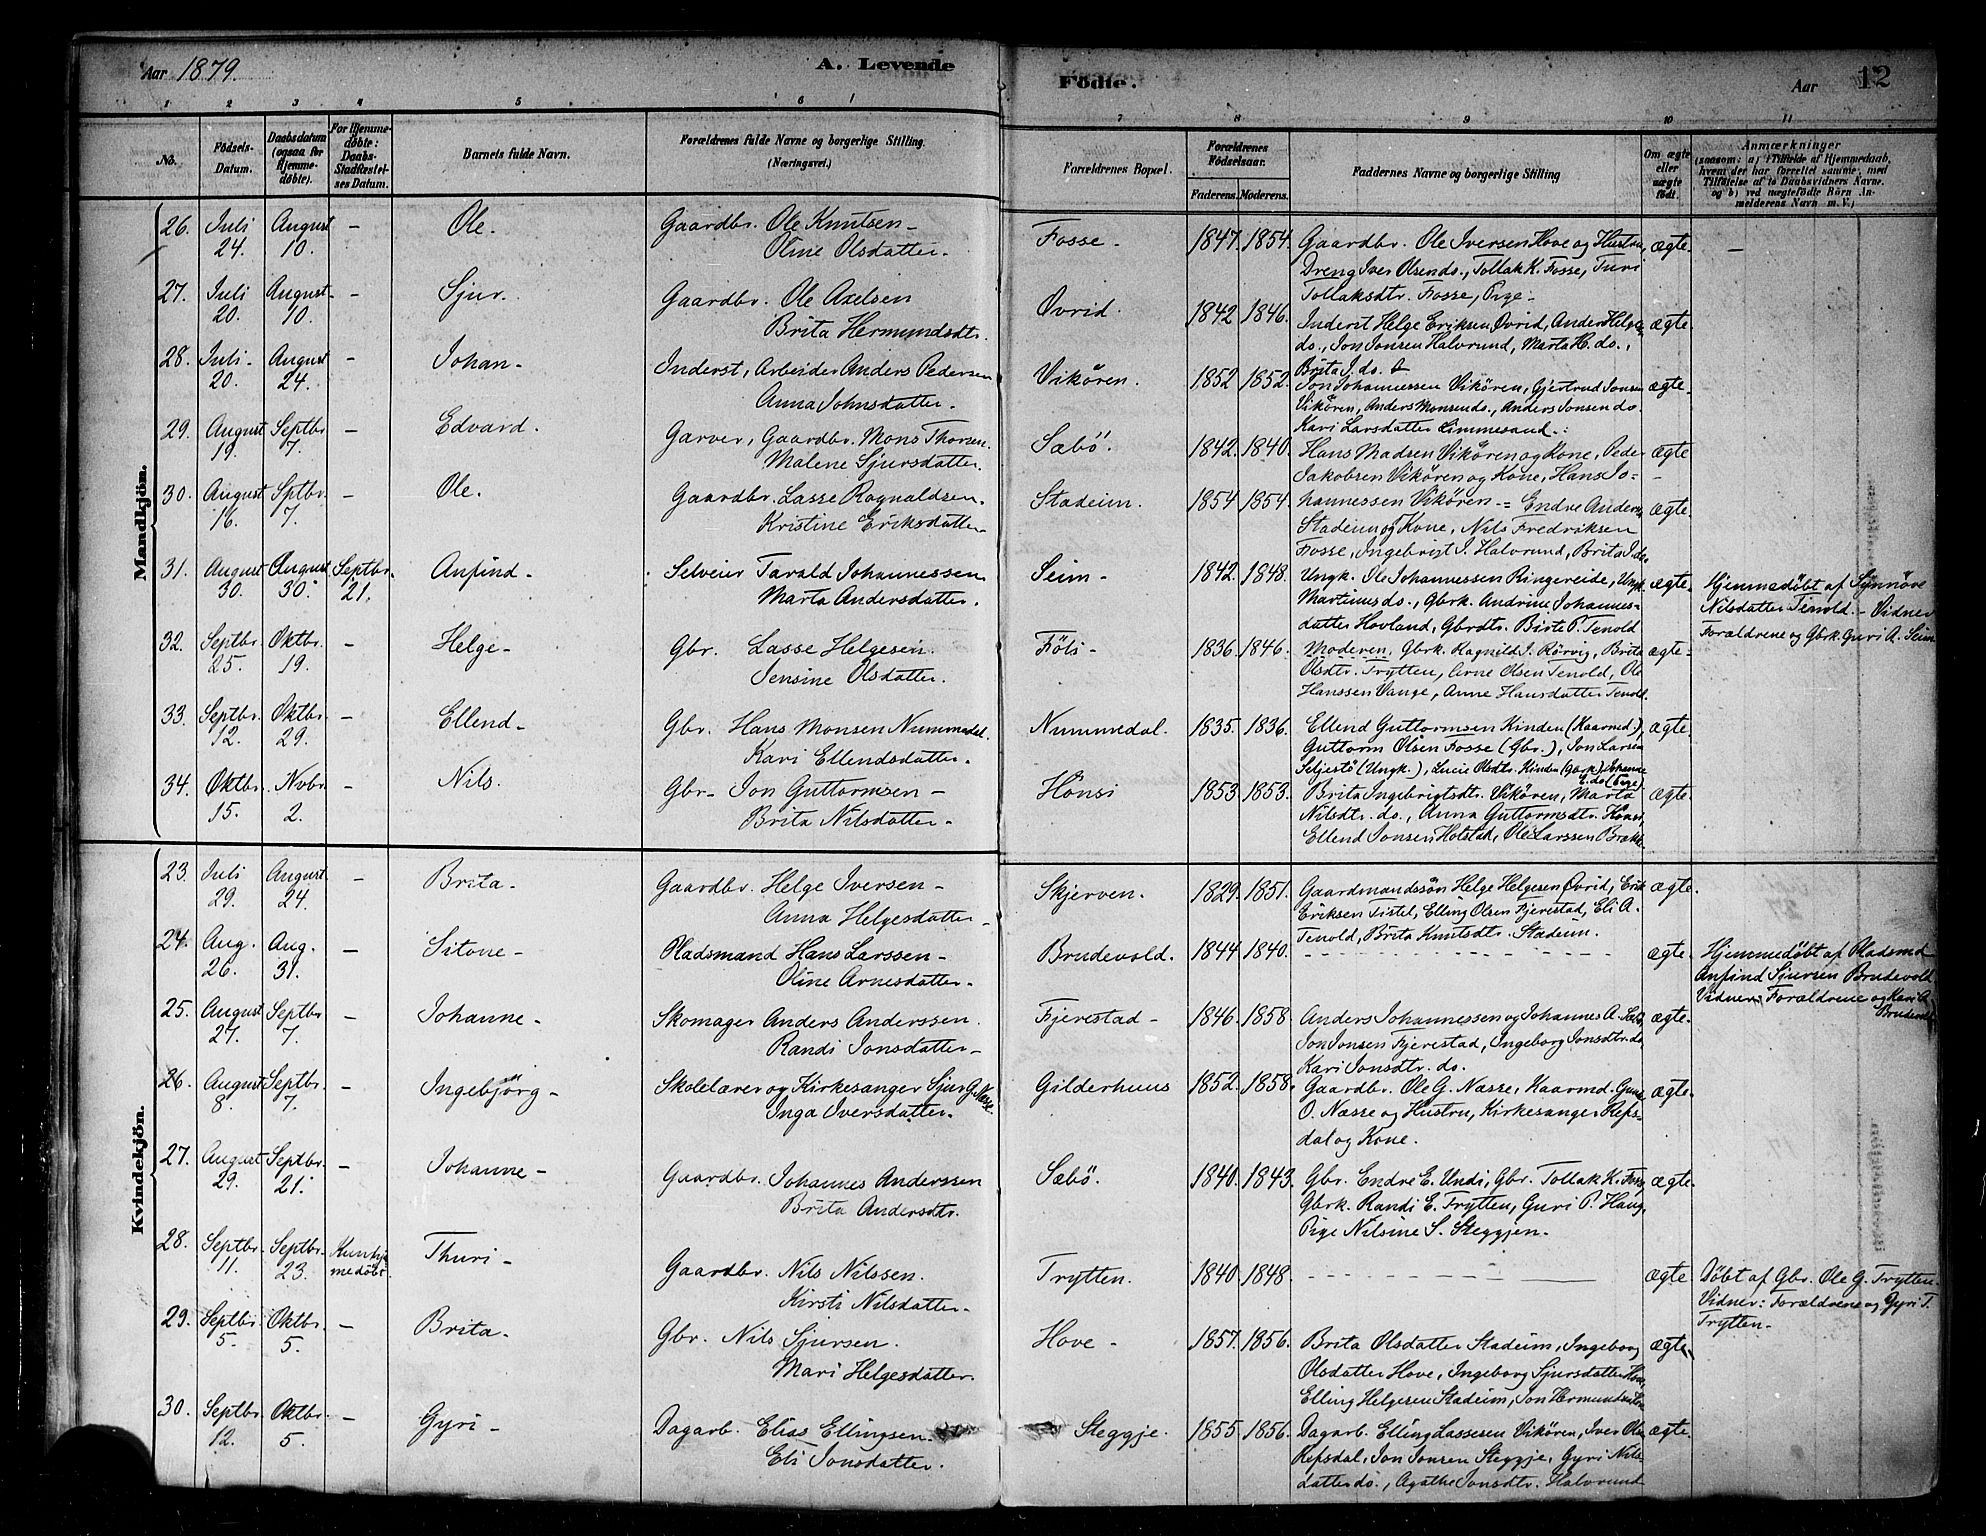 Aar 1879.
A. Levende
Födte.
Aar
12
1 2 3 4 5 6 7 8 9 10 11
No.
Födsels-Datum.
Daabsdatum (ogsaa for Hjemme-döbte).
For Hjemme-döbte: Daabs-Stadfæstel-ses Datum.
Barnets fulde Navn.
Forældrenes fulde Navne og borgerlige Stilling. (Næringsvei.)
Forældrenes Bopæl.
Forældrenes Födselsaar.
Faderens. Moderens.
Faddernes Navne og borgerlige Stilling
Om ægte eller uægte födt.
Anmærkninger
(saasom: a) i Tilfælde af Hjemmedaab, hvem der har forrettet samme, med Tilföielse af to Daabsvidners Navne, og b) ved uægtefödte Börn An-melderens Navn m. V.)
Mandkjön.
26. Juli 24. August 10. - Ole. Gaardbr. Ole Knutsen - Oline Olsdatter. Fosse - 1847. 1854. Gaardbr. Ole Iversen Hove og Hustru, ægte -
Dreng Iver Olsen do., Tollak K. Fosse, Turi
Tollaksdtr. Fosse, Pige -
27. Juli 20. August 10. - Sjur. Gaardbr. Ole Axelsen Brita Hermundsdtr. Övrid. 1842 1846. Inderst Helge Eriksen Övrid, Anders Helges. ægte.
do., Jon Jonsen Halvrund, Marta H. do.,
Brita J. do.
28. Juli - 20. August 24. - Johan - Inderst, Arbeider Anders Pedersen Anna Johnsdatter. Vikören. 1852 1852. Jon Johannessen Vikören, Gjertrud Jonsen ægte.
Vikören, Anders Monsen do., Anders Jonsen do.
Kari Larsdatter Limmesand.
29. August 19. Septbr. 7. - Edvard. Garver, Gaardbr. Mons Thorsen. Malene Sjursdatter. Sæbö. 1842. 1840. Hans Madsen Vikören og Kone, Peder ægte
Jakobsen Vikören og Kone, Hans Jo-
hannessen Vikören -
30. August 16. Sptbr. 7. - Ole. Gaardbr. Lasse Ragnaldsen. Kristine Eriksdatter Stadeim. 1854 1854. Endre Anders. ægte.
Stadeim og Kone, Nils Fredriksen
Fosse, Ingebrigt J. Halvrund, Brita J. do.
31. August 30. August 30. Septbr. 21. Anfind - Selveier Tarald Johannessen Marta Andersdatter. Seim - 1842. 1848. Ungk. Ole Johannessen Ringereide, Ungk. ægte.
Martinus do., Gbrk. Andrine Johannes-
datter Hovland, Gbrdtr. Birte P. Tenold
Hjemmedöbt af Synnöve
Nilsdatter Tenold. - Vidner
Forældrene og Gbrk. Guri A. Seim
32. Septbr. 25. Oktbr. 19. - Helge - Gbr. Lasse Helgesen. Jensine Olsdatter. Föli - 1836. 1846. Moderen, Gbrk. Ragnild J. Rörvig, Brita ægte -
Olsdtr. Trytten, Arne Olsen Tenold, Ole
Hanssen Vange, Anne Hansdatter Tenold.
33. Septbr. 12. Oktbr. 29. - Ellend - Gbr. Hans Monsen Nummedal. Kari Ellendsdatter. Nummedal. 1835. 1836. Ellend Guttormsen Kinden (Kaarmd.), ægte.
Guttorm Olsen Fosse (Gbr.), Jon Larsen
Seljestö (Ungk.), Lucie Olsdtr. Kinden (Gbrk.) Johanne
E. do (Pige)
34. Oktbr. 15. Novbr. 2. - Nils. Gbr - Jon Guttormsen - Brita Nilsdatter - Hönsi 1853. 1853. Brita Ingebrigtsdtr. Vikören, Marta ægte.
Nilsdtr. do., Anna Guttormsdtr. Hönsi,
Ellend Jonsen Holstad, Ole Larssen Brække.
Kvindekjön.
23. Juli 29. August. 24. - Brita - Gaardbr. Helge Iversen - Anna Helgesdatter - Skjerven. 1829. 1851. Gaardmandssön Helge Helgesen Övrid, Erik ægte.
Eriksen Tistel, Elling Olsen Fjerestad, Eli A.
Tenold, Brita Knutsdtr. Stadeim.
24. Aug. 26. Aug. 31. - Sitone - Pladsmand Hans Larssen - Oline Arnesdatter. Brudevold. 1844 1840. ægte.
Hjemmedöbt af Pladsmd
Anfind Sjursen Brudevold
Vidner: Forældrene og Kari A.
Brudevold
25. August 27. Septbr. 7. - Johanne - Skomager Anders Anderssen. Randi Jonsdatter - Fjerestad - 1846. 1858. Anders Johannessen og Johannes A. Sæbö, ægte.
Jon Jonsen Fjerestad, Ingeborg Jonsdtr. do.
Kari Jonsdtr. do.
26. August 8. Septbr. 7. - Ingebjörg - Skolelærer og Kirkesanger Sjur G. Næsse. Inga Iversdatter. Gilderhuus 1852. 1858. Gaardbr. Ole G. Næsse, Kaarmd. Gunn. ægte.
O. Næsse og Hustru, Kirkesanger Refs-
dal og Kone.
27. August 29. Septbr. 21. - Johanne - Gaardbr. Johannes Anderssen Brita Andersdtr. Sæbö. 1840. 1843. Gbr. Endre E. Undi, Gbr. Tollak K. Fosse, ægte.
Gbrk. Randi E. Trytten, Guri P. Haug,
Pige Nilsine S. Steggjen.
28. Septbr. 11. Septbr. 23. Kun hjemmedöbt. Thuri - Gaardbr. Nils Nilssen. Kirsti Nilsdatter. Trytten. 1840. 1848. ægte
Döbt af Gbr. Ole G. Trytten.
Vidner: Forældrene og Gyri T.
Trytten.
29. Septbr. 5. Oktbr. 5. - Brita - Gbr. Nils Sjursen. Mari Helgesdatter. Hove - 1857. 1856. Brita Olsdatter Stadeim, Ingeborg ægte
Olsdatter Hove, Ingeborg Sjursdatter Hove,
Elling Helgesen Stadeim, Jon Hermundsen
30. Septbr. 12. Oktbr. 5. - Gyri - Dagarb. Elias Ellingsen. Eli Jonsdatter. Steggje. 1855. 1856. Dagarb. Elling Lassesen Vikören, Iver Olsen ægte.
Refsdal, Jon Jonsen Steggje, Gyri Nils-
datter do., Agathe Jonsdtr. Halvrund